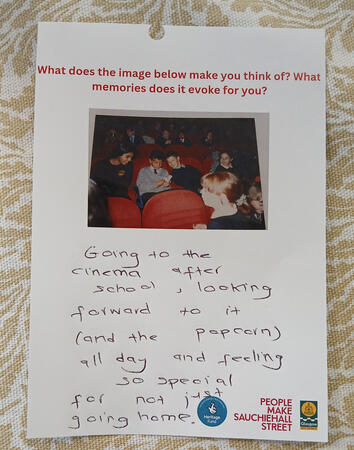 What does the image below make you think of? What
memories does it evoke for you?
Going to the
cinema after
school, looking
forward to it
(and the popcorn)
all day and feeling
so special
for not just
going home.
Heritage
Fund
PEOPLE
MAKE
SAUCHIEHALL
STREET
Glasgow